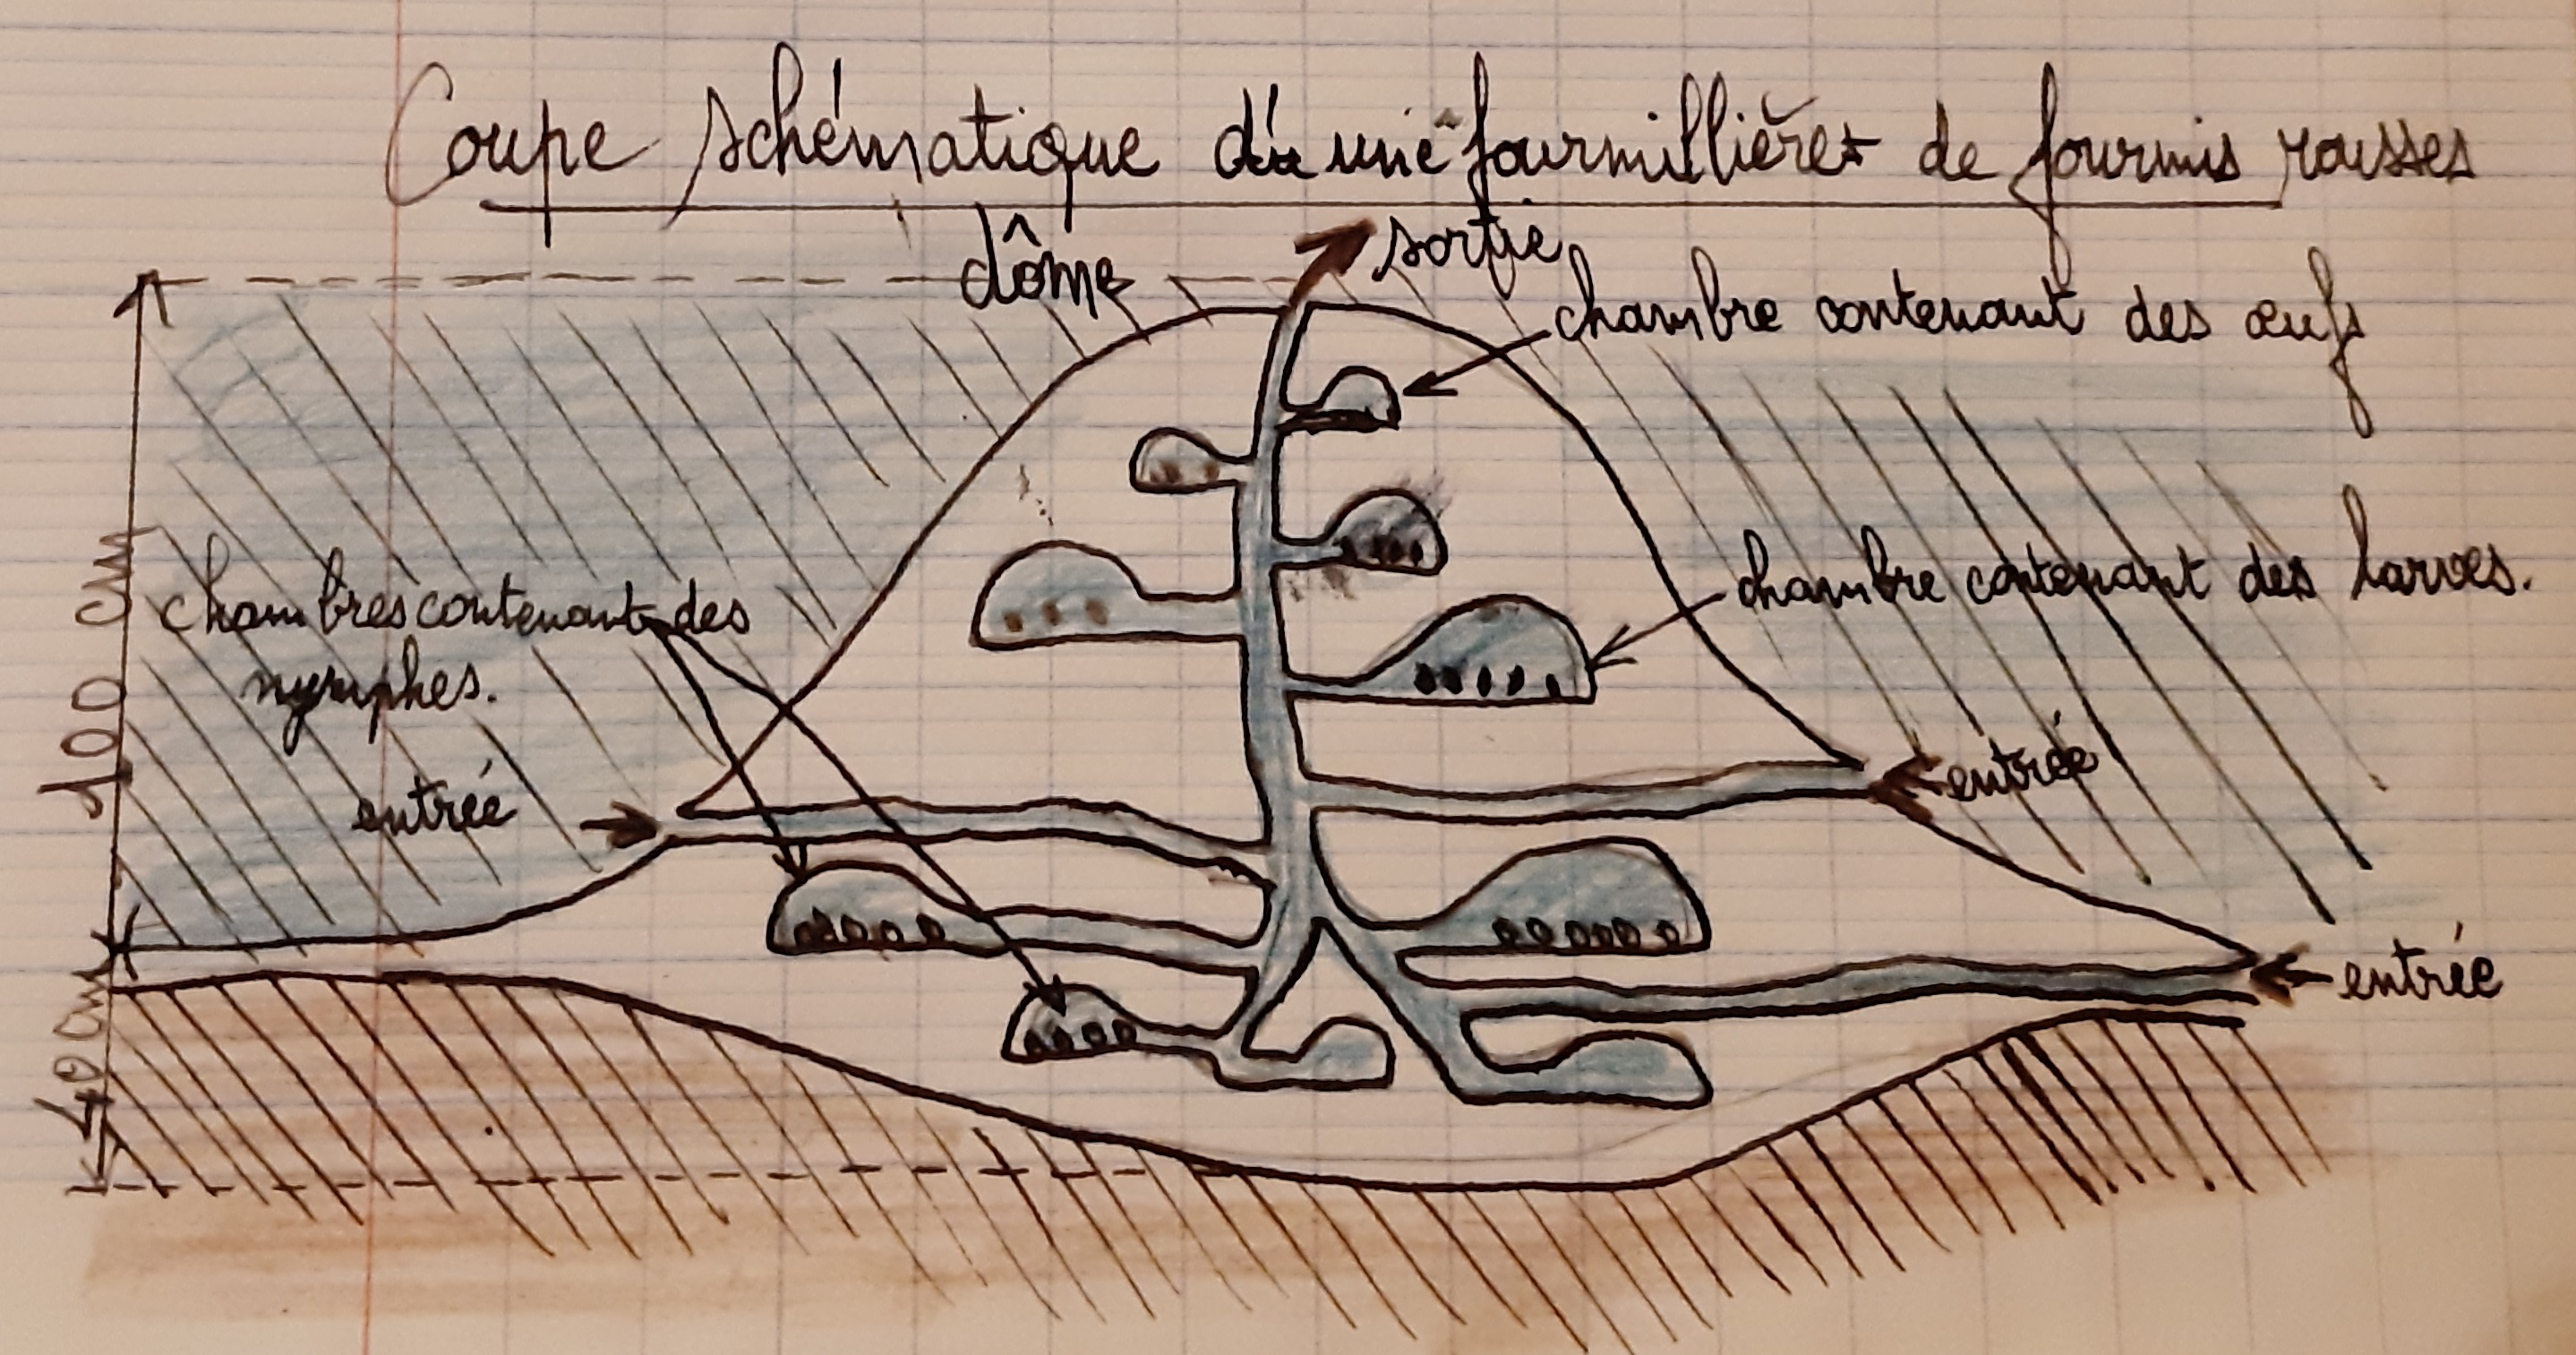 Coupe schématique d'une fourmillière de fourmis rousses
dôme
sortie
chambre contenant des œufs
100 cm
chambres contenant des
nymphes.
chambre contenant des larves.
entrée
entrée
entrée
40 cm